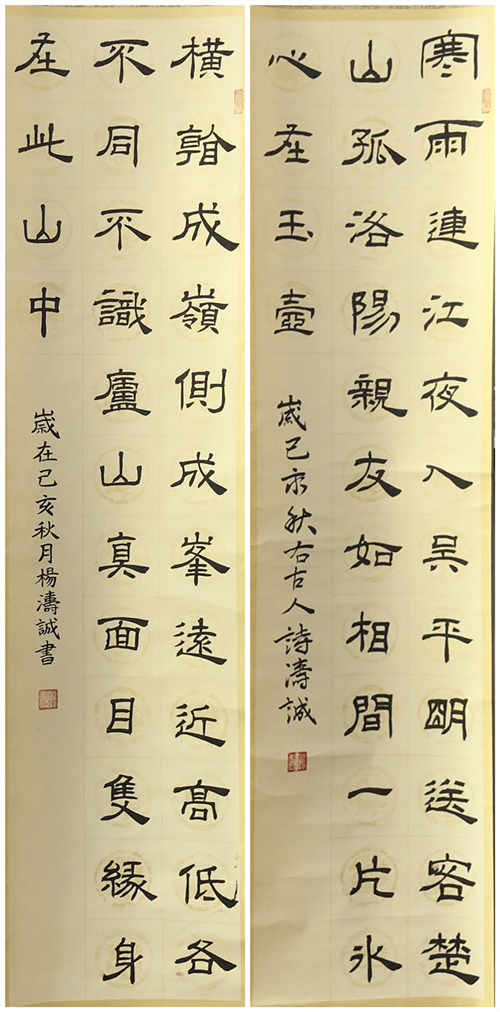 寒雨連江夜入吳平明送客楚
山孤洛陽親友如相間一片氷
心在玉壺
歲己亥秋右古人詩濤誠
橫看成嶺側成峯遠近高低各
不同不識廬山真面目隻緣身
在此山中
歲在己亥秋月楊濤誠書